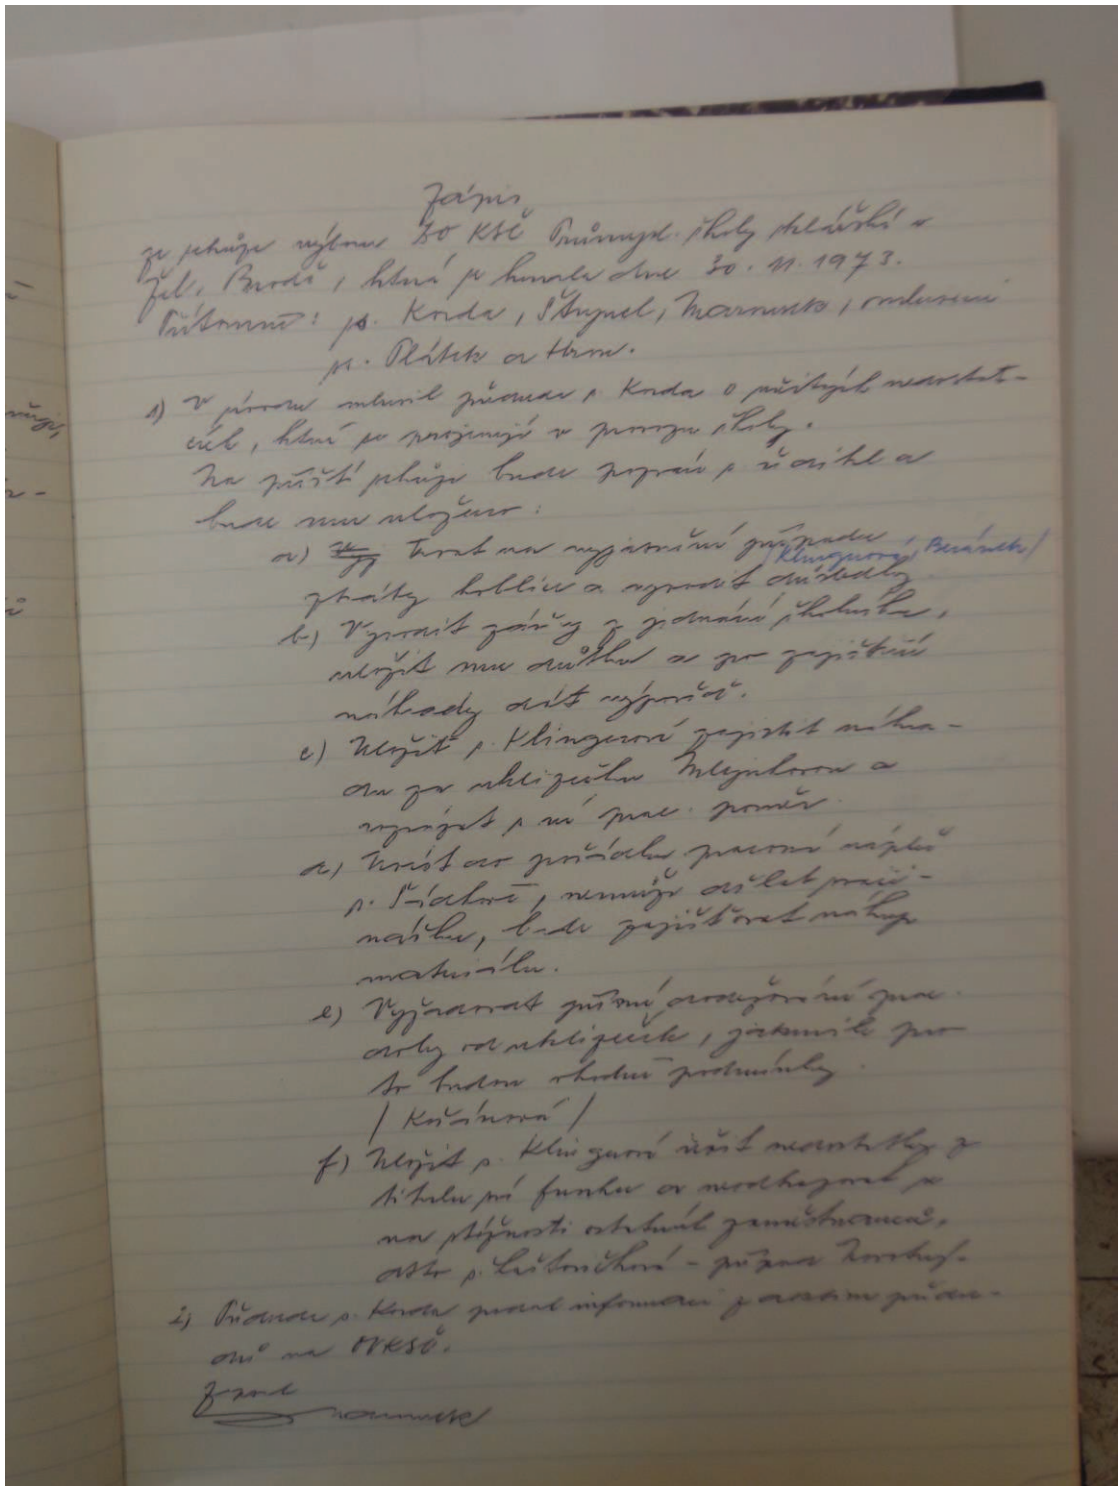 Zápis
ze schůze výboru ZO KSČ Průmysl. školy sklářské v
Žel. Brodě, která se konala dne 30. 11. 1973.
Přítomni: ss. Korda, Štrynel, omluveni
ss. Plátek a
1) V úvodu mluvil předseda s. Korda o určitých nedostat-
cích, které se projevují v provozu školy.
Na příští schůzi bude pozván s. ředitel a
bude mu uloženo:
a) Trvat na vyjasnění případu
/Klingerová, Beránek/
ztráty koblic a vyvodit důsledky
b) Vyvodit závěry z jednání školníka,
uložit mu důtku a po zajištění
náhrady dát výpověď.
c) Uložit s. Klingerové zajistit náhra-
du za uklízečku a
rozvázat s ní prac. poměr.
d) Uvést do pořádku pracovní náplň
s. nemůže dělat
bude zajišťovat nákup
materiálu.
e) Vyžadovat přísné dodržování prac.
doby od uklízeček, jakmile pro
to budou vhodné podmínky.
/ /
f) Uložit s. Klingerové řešit nedostatky z
titulu své funkce a neodkazovat se
na stížnosti ostatních zaměstnanců,
s. - případ
2) Předseda s. Korda podal informaci z předse-
dů na OVKSČ.
Zapsal